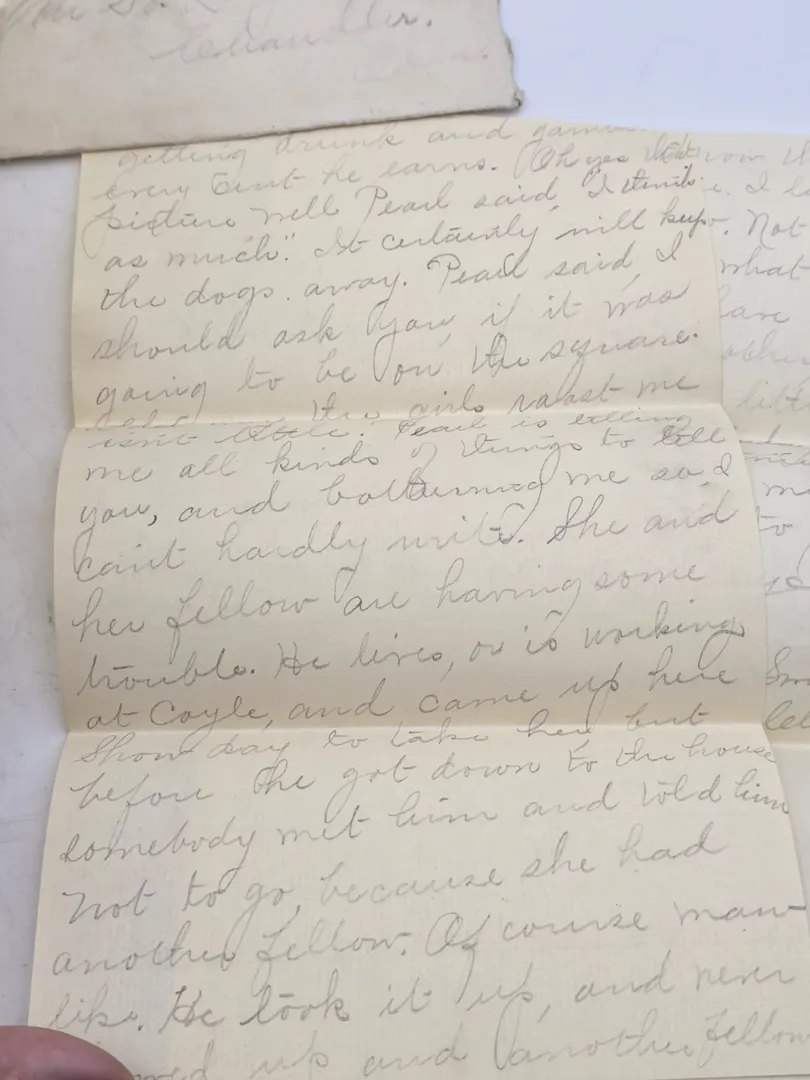 Chandler.
getting drunk and
every cent he earns. Oh yes
picture well Pearl said, "I think
as much". It certainly will keep
the dogs away. Pearl said, I
should ask you, if it was
going to be on the square.
the girls roast me
isn't little. Pearl is telling
me all kinds of things to tell
you, and bothering me so, I
can't hardly write. She and
her fellow are having some
trouble. He lives, or is working
at Coyle, and came up here
Show day to take her but
before he got down to the house
somebody met him and told him
not to go, because she had
another fellow. Of course man
like. He took it up, and never
up and another fellow
Not
what